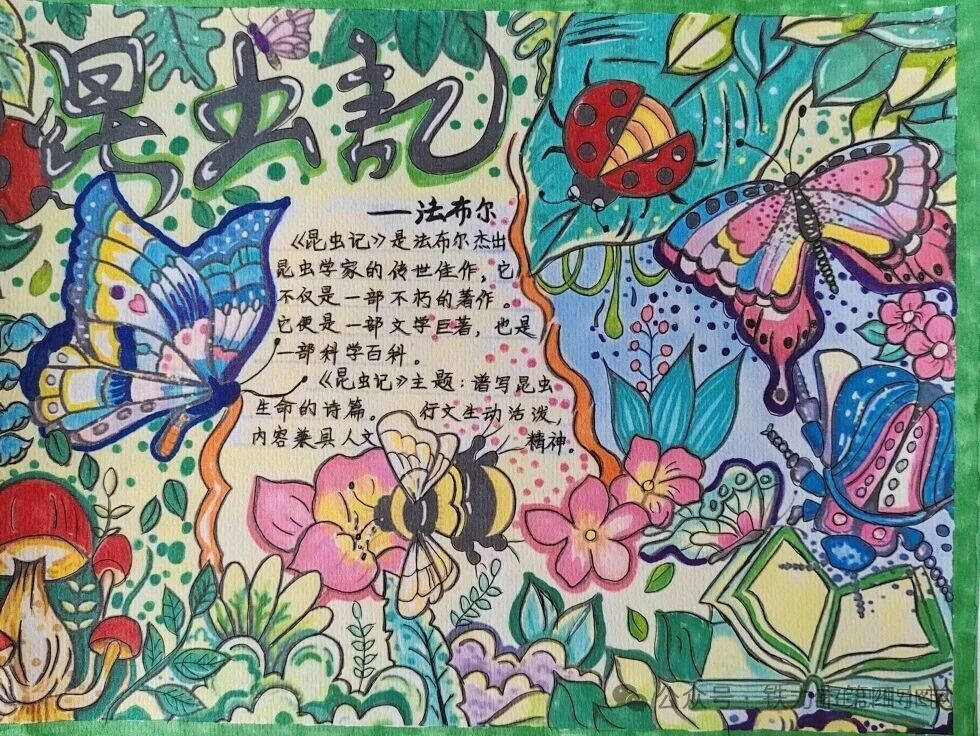 昆虫記
——法布尔
《昆虫记》是法布尔杰出
昆虫学家的传世佳作，它
不仅是一部不朽的著作。
它便是一部文学巨著，也是
一部科学百科。
《昆虫记》主题：谱写昆虫
生命的诗篇。 行文生动活泼，
内容兼具人文 精神。
公众号